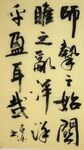 師摯之始關
雎之亂洋洋
乎盈耳哉